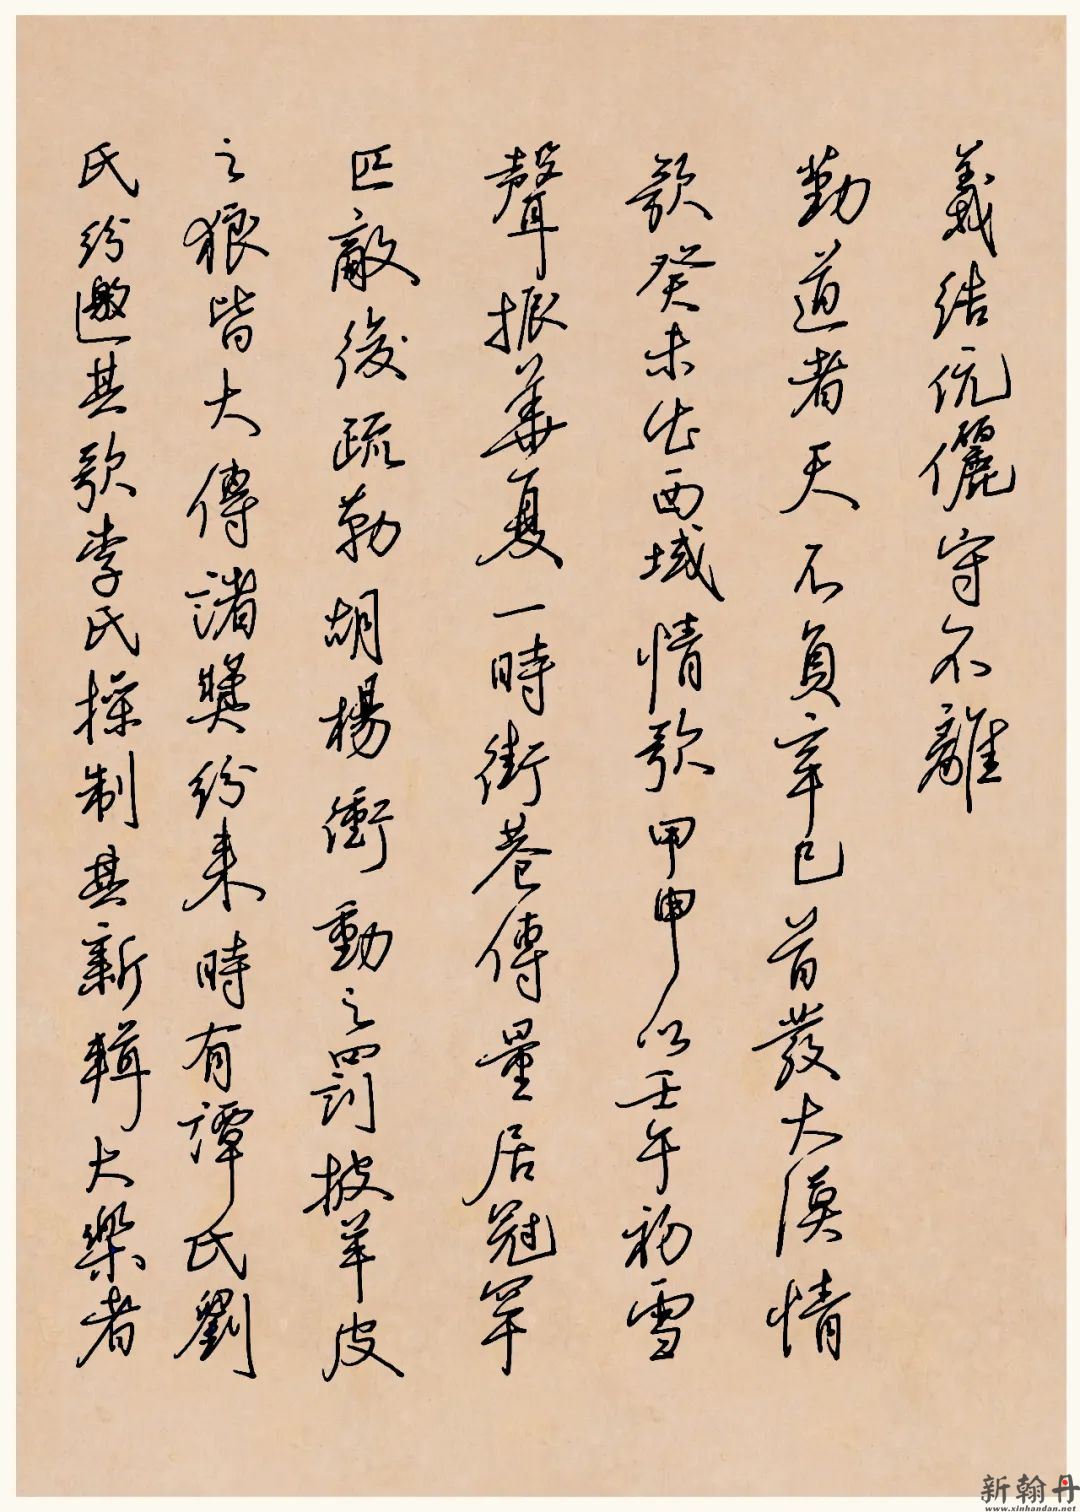 義結伉儷守不離
勤道者天不負辛巳首發大漠情
歌癸未出西域情歌甲申以壬午初雪
聲振華夏一時街巷傳量居冠罕
匹敵後疏勒胡楊衝動之罰披羊皮
之狼皆大傳諸獎紛來時有譚氏劉
氏紛邀其歌李氏操制其新輯大樂者
新翰丹
www.xinhandan.net